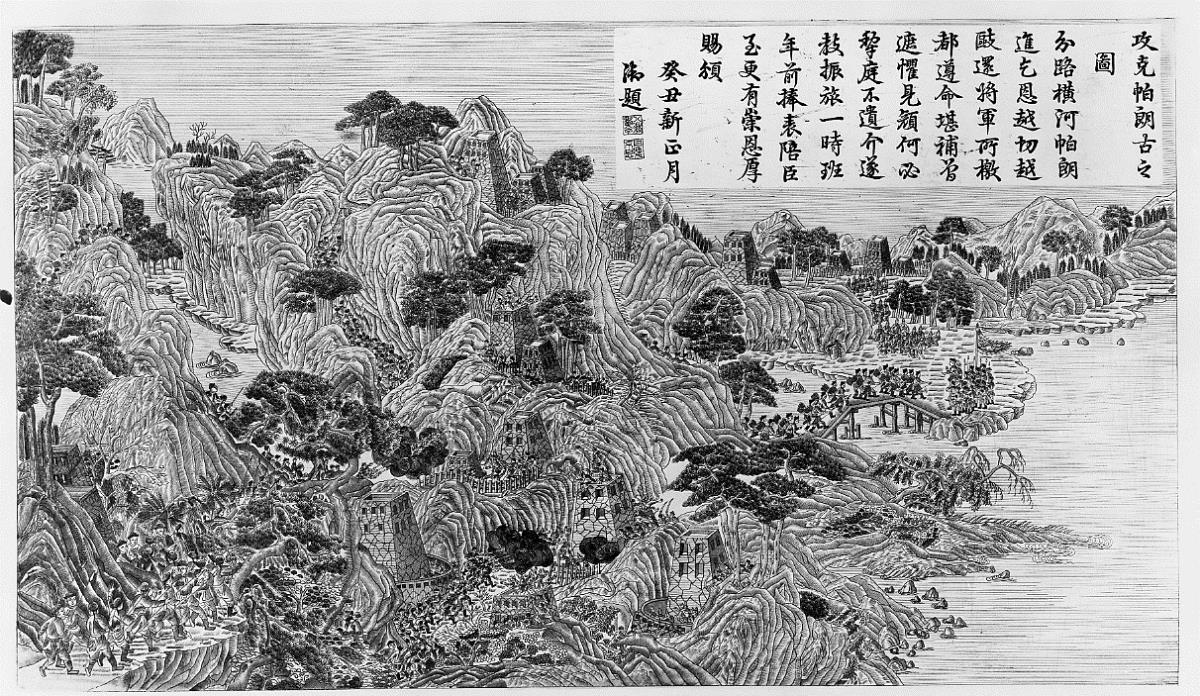 攻克帕朗古之
圖
分路橫河帕朗
進乞恩越切越
毆還將軍所檄
都遵命堪補曾
遮懼見顏何必
犂庭不遺介遂
敕振旅一時班
年前捧表陪臣
至更有崇恩厚
賜頒
癸丑新正月
御題